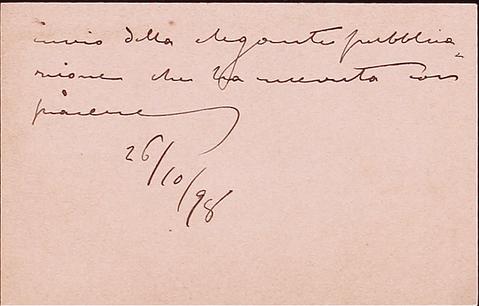 invio della elegante pubblica=
zione che ha ricevuta con
piacere
26/10/98